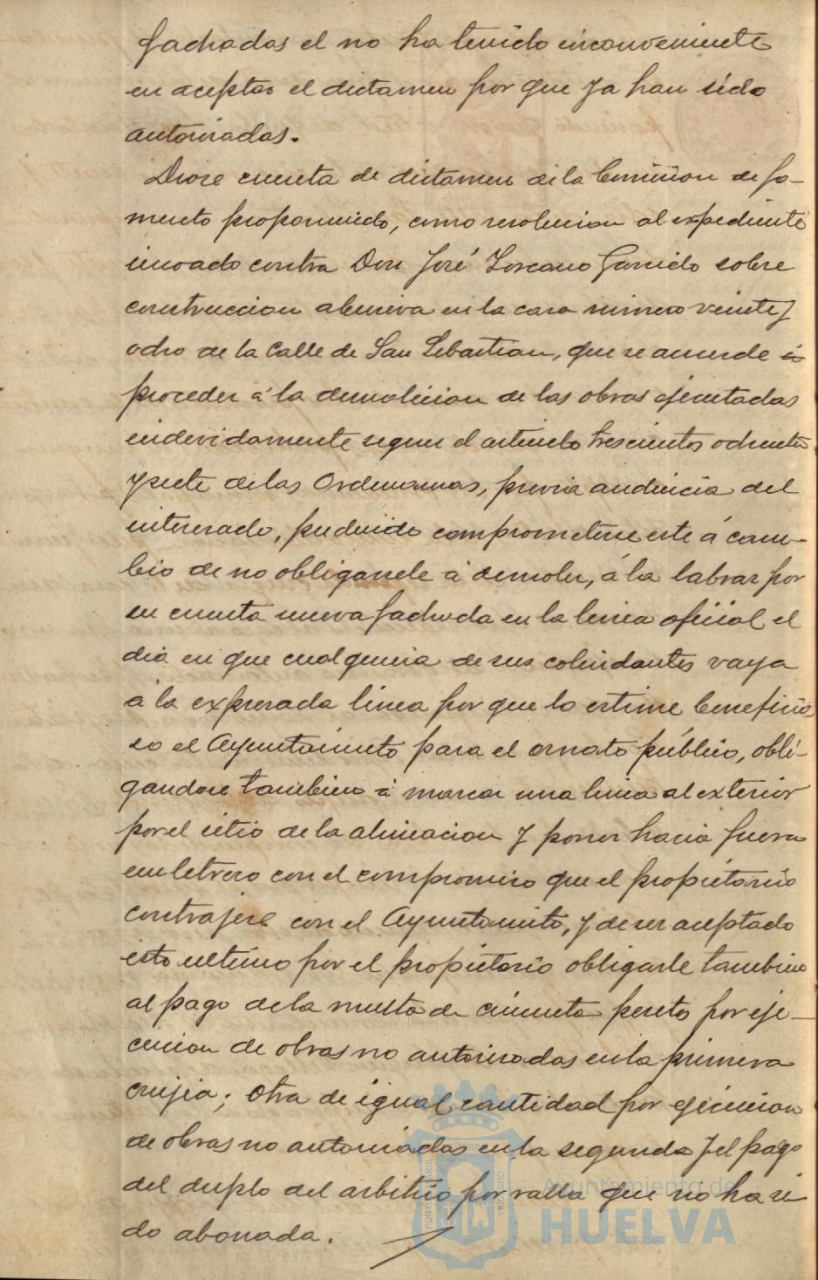 fachadas el no ha tenido inconveniente
en aceptar el dictamen por que ya han sido
autorizadas.
Diose cuenta de dictamen de la Comision de fo-
mento proponiendo, como resolucion al expediente
incoado contra Don José Lorcano Garrido sobre
construccion abusiva en la casa número veinte y
ocho de la Calle de San Sebastian, que se acuerde
proceder á la demolicion de las obras ejecutadas
indevidamente segun el articulo trescientos ochenta
y siete de las Ordenanzas, previa audiencia del
interesado, pudiendo comprometerse este á cam-
bio de no obligarsele á demoler, á la labrar por
su cuenta nueva fachada en la linea oficial el
dia en que cualquiera de sus colindantes vaya
á la expresada linea por que lo estime beneficio
so el Ayuntamiento para el ornato público, obli-
gandose tambien á marcar una linea al exterior
por el sitio de la alineacion y poner hacia fuera
un letrero con el compromiso que el propietario
contrajese con el Ayuntamiento, y de ser aceptado
esto ultimo por el propietario obligarle tambien
al pago de la multa de cincuenta pesetas por eje-
cucion de obras no autorizadas en la primera
crujia; otra de igual cantidad por ejecucion
de obras no autorizadas en la segunda y el pago
del duplo del arbitrio por valla que no ha si
do abonada.
Ayuntamiento de
HUELVA